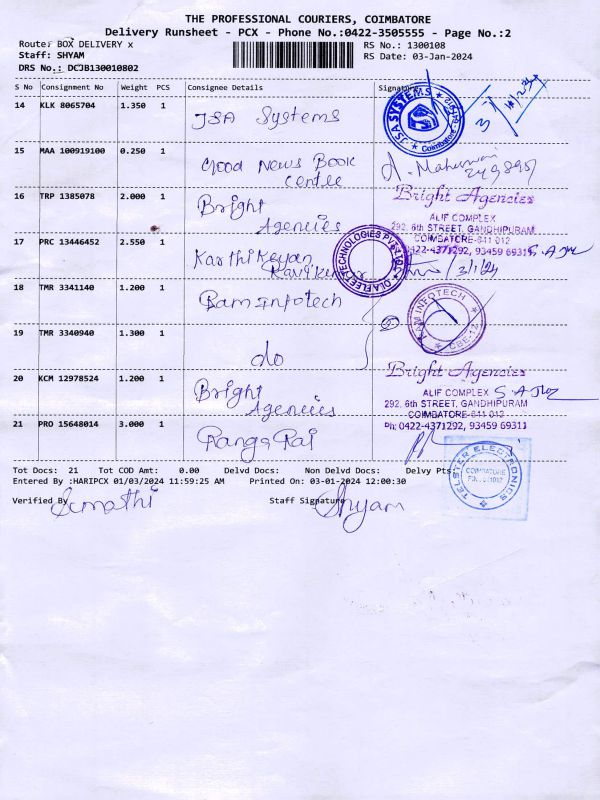 THE PROFESSIONAL COURIERS, COIMBATORE
Delivery Runsheet - PCX - Phone No.:0422-3505555 - Page No.:2
Route: BOX DELIVERY x
RS No.: 1300108
Staff: SHYAM
RS Date: 03-Jan-2024
DRS No.: DCJB130010802
S No Consignment No Weight PCS Consignee Details Signature
14 KLK 8065704 1.350 1 JSA Systems
JSA SYSTEMS
Coimbatore
15 MAA 100919100 0.250 1 Good News Book
Centre
16 TRP 1385078 2.000 1 Bright
Agencies
Bright Agencies
ALIF COMPLEX
292, 6th STREET, GANDHIPURAM,
COIMBATORE-641 012
0422-4371292, 93459 69311
17 PRC 13446452 2.550 1 Karthikeyan
Ravikumar
3/1/24
18 TMR 3341140 1.200 1 Ram infotech
RAM INFOTECH
CBE-12
19 TMR 3340940 1.300 1 do
20 KCM 12978524 1.200 1 Bright
Agencies
Bright Agencies
ALIF COMPLEX
292, 6th STREET, GANDHIPURAM
COIMBATORE-641 012
Ph: 0422-4371292, 93459 69311
21 PRO 15648014 3.000 1 Ranga Raj
TELSTER ELECTRONICS
COIMBATORE
Tot Docs: 21 Tot COD Amt: 0.00 Delvd Docs: Non Delvd Docs: Delvy Pts:
Entered By :HARIPCX 01/03/2024 11:59:25 AM Printed On: 03-01-2024 12:00:30
Verified By Sumathi
Staff Signature Shyam